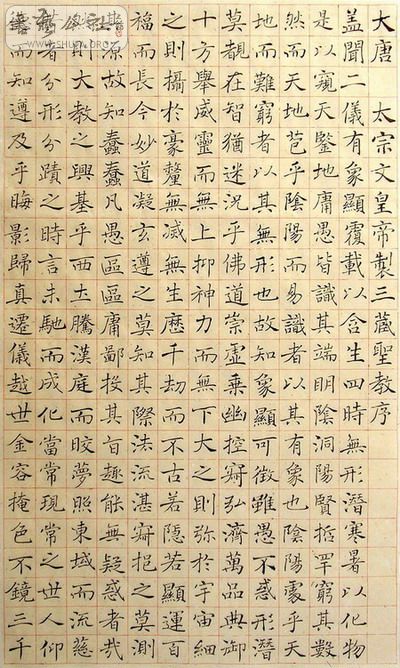 大唐 太宗文皇帝製三藏聖教序
蓋聞二儀有象顯覆載以含生四時無形潛寒暑以化物
是以窺天鑒地庸愚皆識其端明陰洞陽賢哲罕窮其數
然而天地苞乎陰陽而易識者以其有象也陰陽處乎天
地而難窮者以其無形也故知象顯可徵雖愚不惑形潛
莫覩在智猶迷況乎佛道崇虛乘幽控寂弘濟萬品典御
十方舉威靈而無上抑神力而無下大之則彌於宇宙細
之則攝於豪釐無滅無生歷千劫而不古若隱若顯運百
福而長今妙道凝玄遵之莫知其際法流湛寂挹之莫測
其源故知蠢蠢凡愚區區庸鄙投其旨趣能無疑惑者哉
則大教之興基乎西土騰漢庭而皎夢照東域而流慈
者分形分蹟之時言未馳而成化當常現常之世人仰
而知遵及乎晦影歸真遷儀越世金容掩色不鏡三千